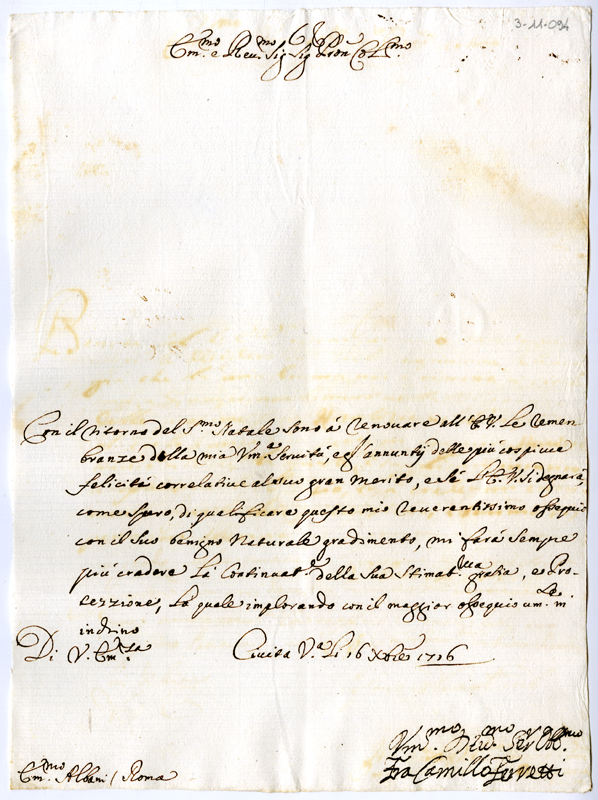 3-11-094
Em.mo e Rev.mo Sig.r Sig.r Pron Col.mo
Con il ritorno del S.mo Natale sono à renovare all'E.V. Le remem
branze della mia Um.a Servitù, e gl'annuntij delle più cospicue
felicità correlative al suo gran merito, e sé L'E.V. si degnarà,
come spero, di qualificare questo mio reverentissimo ossequio
con il suo benigno Naturale gradimento, mi farà sempre
più credere La Continuat.e della Sua Stimat.ma gratia, e Pro-
tezzione, La quale implorando con il maggior ossequio um.te m'
inchino
Di V. Em.za Civita V.a Li 16 Xbre 1716
Um.mo Dev.mo Ser. Obl.mo
Fra Camillo Ferretti
Em.mo Albani / Roma